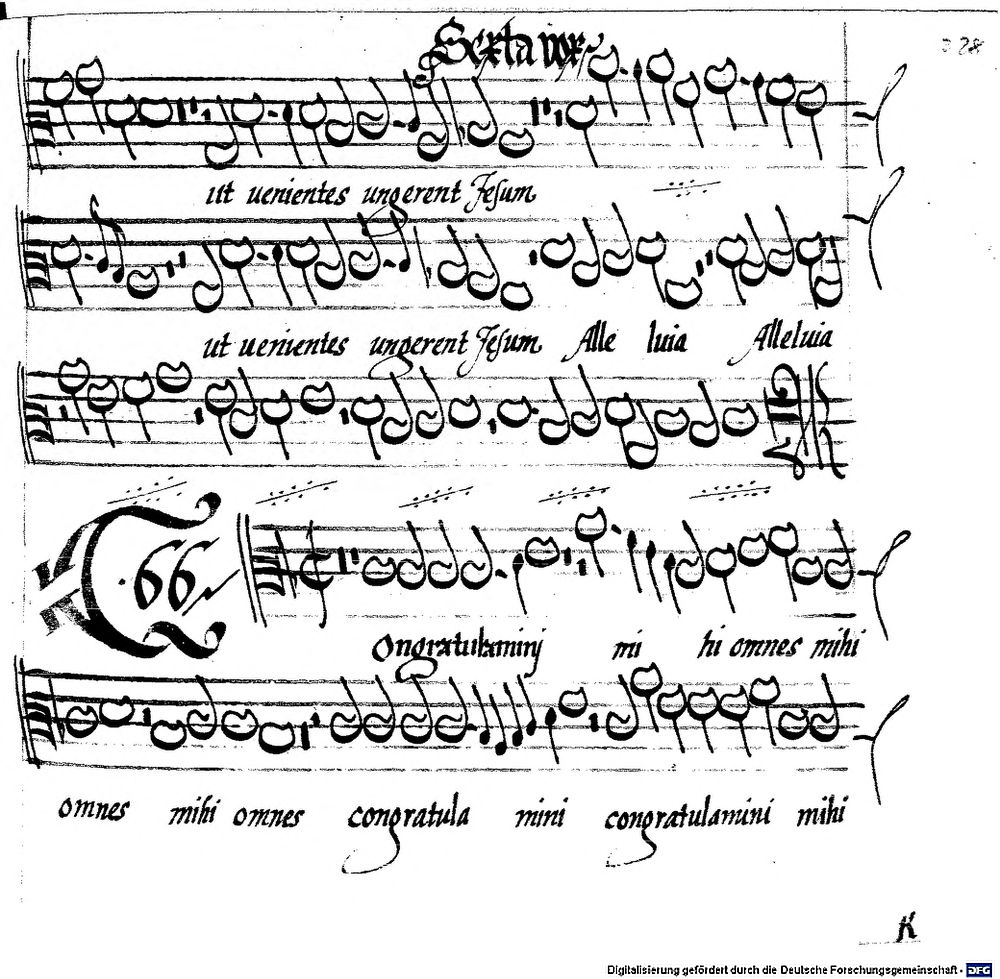 Sexta vox
ut uenientes ungerent Jesum
ut uenientes ungerent Jesum Alle luia Alleluia
C 66
ongratulamini mi hi omnes mihi
omnes mihi omnes congratula mini congratulamini mihi
K
Digitalisierung gefördert durch die Deutsche Forschungsgemeinschaft - DFG